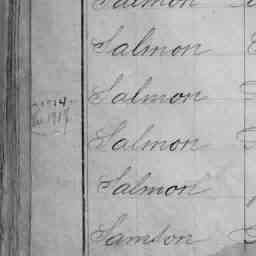 Salmon
Salmon
Salmon
Salmon
Salmon
Samson